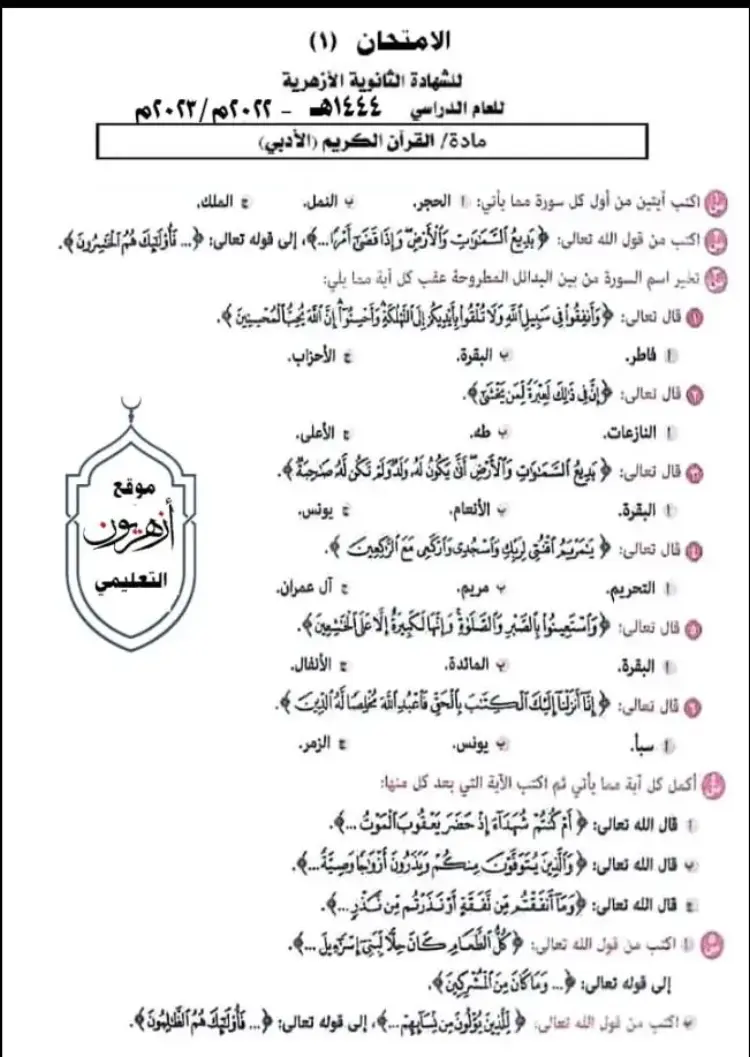 الامتحان (١)
للشهادة الثانوية الأزهرية
للعام الدراسي ١٤٤٤هـ - ٢٠٢٢م/٢٠٢٣م
مادة/ القرآن الكريم (الأدبي)
س١ اكتب آيتين من أول كل سورة مما يأتي: أ الحجر. ب النمل. ج الملك.
س٢ اكتب من قول الله تعالى: ﴿بَدِيعُ السَّمَاوَاتِ وَالْأَرْضِ وَإِذَا قَضَىٰ أَمْرًا...﴾، إلى قوله تعالى: ﴿... فَأُولَٰئِكَ هُمُ الْخَاسِرُونَ﴾.
س٣ تخير اسم السورة من بين البدائل المطروحة عقب كل آية مما يلي:
١ قال تعالى: ﴿وَأَنفِقُوا فِي سَبِيلِ اللَّهِ وَلَا تُلْقُوا بِأَيْدِيكُمْ إِلَى التَّهْلُكَةِ وَأَحْسِنُوا إِنَّ اللَّهَ يُحِبُّ الْمُحْسِنِينَ﴾.
أ فاطر. ب البقرة. ج الأحزاب.
٢ قال تعالى: ﴿إِنَّ فِي ذَٰلِكَ لَعِبْرَةً لِّمَن يَخْشَىٰ﴾.
أ النازعات. ب طه. ج الأعلى.
٣ قال تعالى: ﴿بَدِيعُ السَّمَاوَاتِ وَالْأَرْضِ أَنَّىٰ يَكُونُ لَهُ وَلَدٌ وَلَمْ تَكُن لَّهُ صَاحِبَةٌ﴾.
أ البقرة. ب الأنعام. ج يونس.
٤ قال تعالى: ﴿يَا مَرْيَمُ اقْنُتِي لِرَبِّكِ وَاسْجُدِي وَارْكَعِي مَعَ الرَّاكِعِينَ﴾.
أ التحريم. ب مريم. ج آل عمران.
٥ قال تعالى: ﴿وَاسْتَعِينُوا بِالصَّبْرِ وَالصَّلَاةِ وَإِنَّهَا لَكَبِيرَةٌ إِلَّا عَلَى الْخَاشِعِينَ﴾.
أ البقرة. ب المائدة. ج الأنفال.
٦ قال تعالى: ﴿إِنَّا أَنزَلْنَا إِلَيْكَ الْكِتَابَ بِالْحَقِّ فَاعْبُدِ اللَّهَ مُخْلِصًا لَّهُ الدِّينَ﴾.
أ سبأ. ب يونس. ج الزمر.
موقع
أزهريون
التعليمي
س٤ أكمل كل آية مما يأتي ثم اكتب الآية التي بعد كل منها:
أ قال الله تعالى: ﴿أَمْ كُنتُمْ شُهَدَاءَ إِذْ حَضَرَ يَعْقُوبَ الْمَوْتُ ...﴾.
ب قال الله تعالى: ﴿وَالَّذِينَ يُتَوَفَّوْنَ مِنكُمْ وَيَذَرُونَ أَزْوَاجًا وَصِيَّةً...﴾.
ج قال الله تعالى: ﴿وَمَا أَنفَقْتُم مِّن نَّفَقَةٍ أَوْ نَذَرْتُم مِّن نَّذْرٍ...﴾.
س٥ أ اكتب من قول الله تعالى: ﴿كُلُّ الطَّعَامِ كَانَ حِلًّا لِّبَنِي إِسْرَائِيلَ ...﴾.
إلى قوله تعالى: ﴿... وَمَا كَانَ مِنَ الْمُشْرِكِينَ﴾.
ب اكتب من قول الله تعالى: ﴿لِّلَّذِينَ يُؤْلُونَ مِن نِّسَائِهِمْ...﴾، إلى قوله تعالى: ﴿... فَأُولَٰئِكَ هُمُ الظَّالِمُونَ﴾.